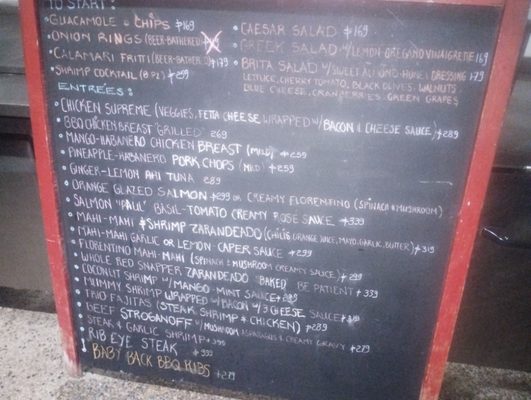 TO START:
GUACAMOLE & CHIPS $169
ONION RINGS (BEER-BATHERED)
CALAMARI FRITTI (BEER-BATHER D) $179
SHRIMP COCKTAIL (8 PZ.) $259
CAESAR SALAD $169
GREEK SALAD W/LEMON OREGANO VINAIGRETTE 169
BRITA SALAD W/SWEET ALMOND-HONEY DRESSING 179
LETTUCE, CHERRY TOMATO, BLACK OLIVES, WALNUTS
BLUE CHEESE, CRANBERRIES, GREEN GRAPES
ENTREES:
CHICKEN SUPREME (VEGGIES, FETTA CHEESE WRAPPED W/BACON & CHEESE SAUCE) $289
BBQ CHICKEN BREAST "GRILLED" 269
MANGO-HABANERO CHICKEN BREAST (MILD) $259
PINEAPPLE-HABANERO PORK CHOPS (MILD) $259
GINGER-LEMON AHI TUNA 289
ORANGE GLAZED SALMON $299 OR CREAMY FLORENTINO (SPINACH & MUSHROOM)
SALMON "PAUL" BASIL-TOMATO CREAMY ROSE SAUCE $339
MAHI-MAHI & SHRIMP ZARANDEADO (CHILIS, ORANGE JUICE, MAYO, GARLIC, BUTTER) $319
MAHI-MAHI GARLIC OR LEMON CAPER SAUCE $299
FLORENTINO MAHI-MAHI (SPINACH & MUSHROOM CREAMY SAUCE) $299
WHOLE RED SNAPPER ZARANDEADO "BAKED" BE PATIENT $339
COCONUT SHRIMP W/MANGO-MINT SAUCE $289
MUMMY SHRIMP WRAPPED W/BACON W/3 CHEESE SAUCE
TRIO FAJITAS (STEAK, SHRIMP & CHICKEN) $289
BEEF STROGANOFF W/MUSHROOM ASPARAGUS & CREAMY GRAVY $279
STEAK & GARLIC SHRIMP $339
RIB EYE STEAK $339
BABY BACK BBQ RIBS $279